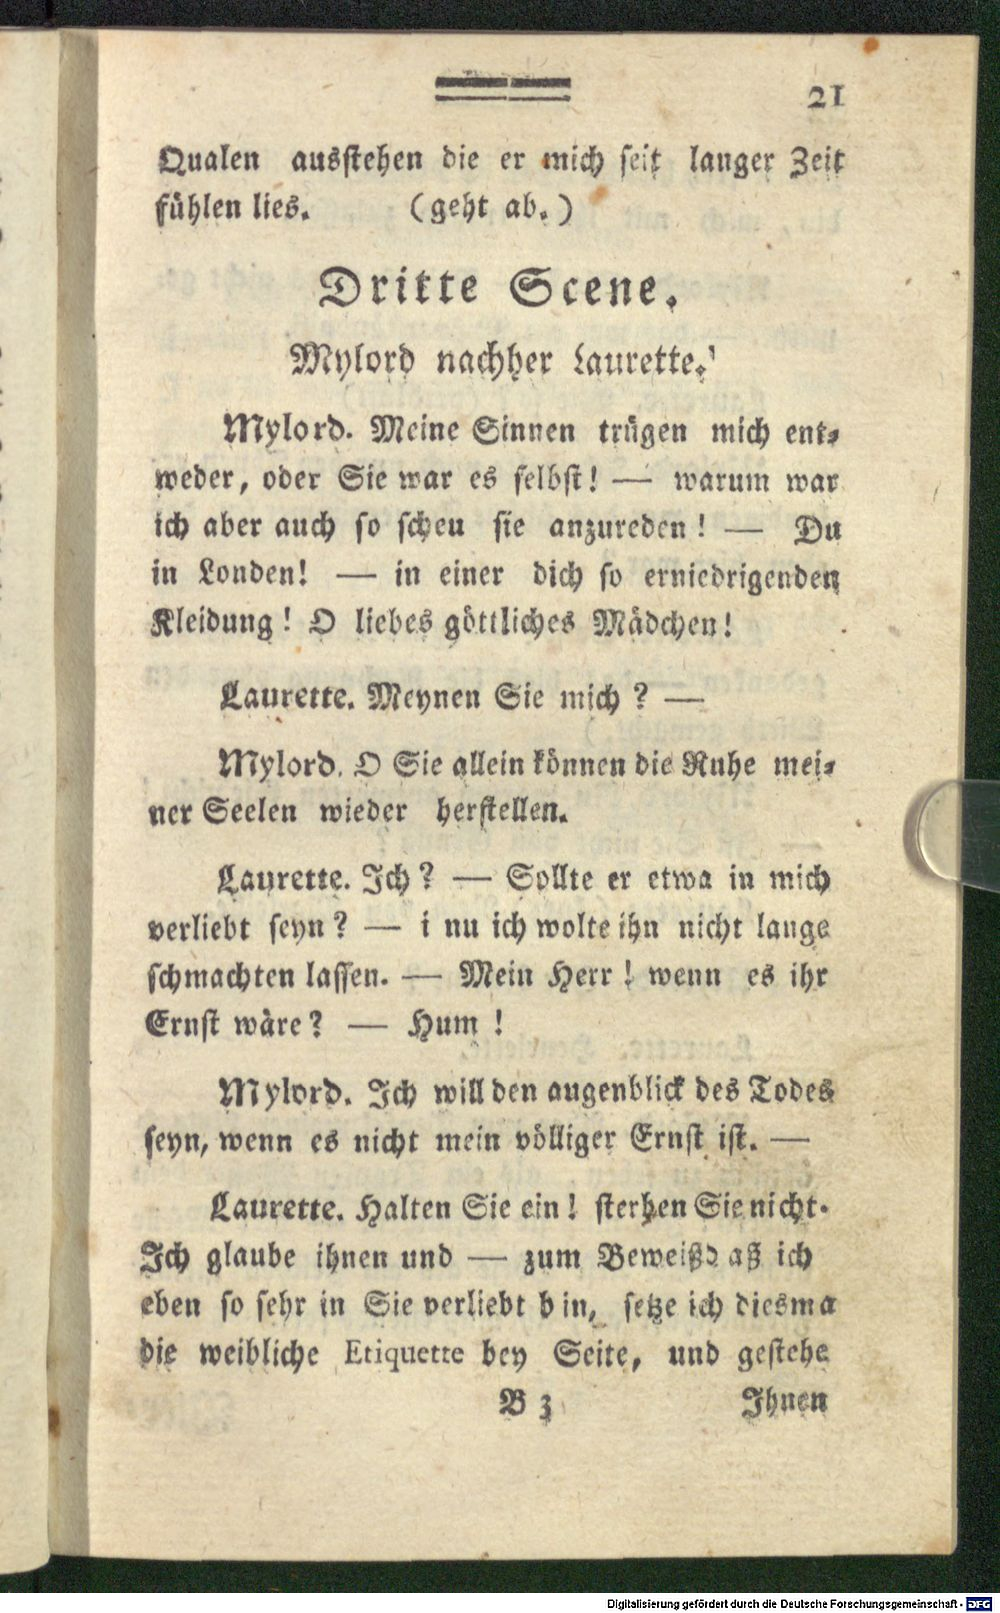 21
Qualen ausstehen die er mich seit langer Zeit
fühlen lies. (geht ab.)
Dritte Scene.
Mylord nachher Laurette.
Mylord. Meine Sinnen trügen mich ent-
weder, oder Sie war es selbst! — warum war
ich aber auch so scheu sie anzureden! — Du
in Londen! — in einer dich so erniedrigenden
Kleidung! O liebes göttliches Mädchen!
Laurette. Meynen Sie mich? —
Mylord. O Sie allein können die Ruhe mei-
ner Seelen wieder herstellen.
Laurette. Ich? — Sollte er etwa in mich
verliebt seyn? — i nu ich wolte ihn nicht lange
schmachten lassen. — Mein Herr! wenn es ihr
Ernst wäre? — Hum!
Mylord. Ich will den augenblick des Todes
seyn, wenn es nicht mein völliger Ernst ist. —
Laurette. Halten Sie ein! sterben Sie nicht.
Ich glaube ihnen und — zum Beweißd aß ich
eben so sehr in Sie verliebt bin, setze ich diesma
die weibliche Etiquette bey Seite, und gestehe
B 3 Ihnen
Digitalisierung gefördert durch die Deutsche Forschungsgemeinschaft - DFG